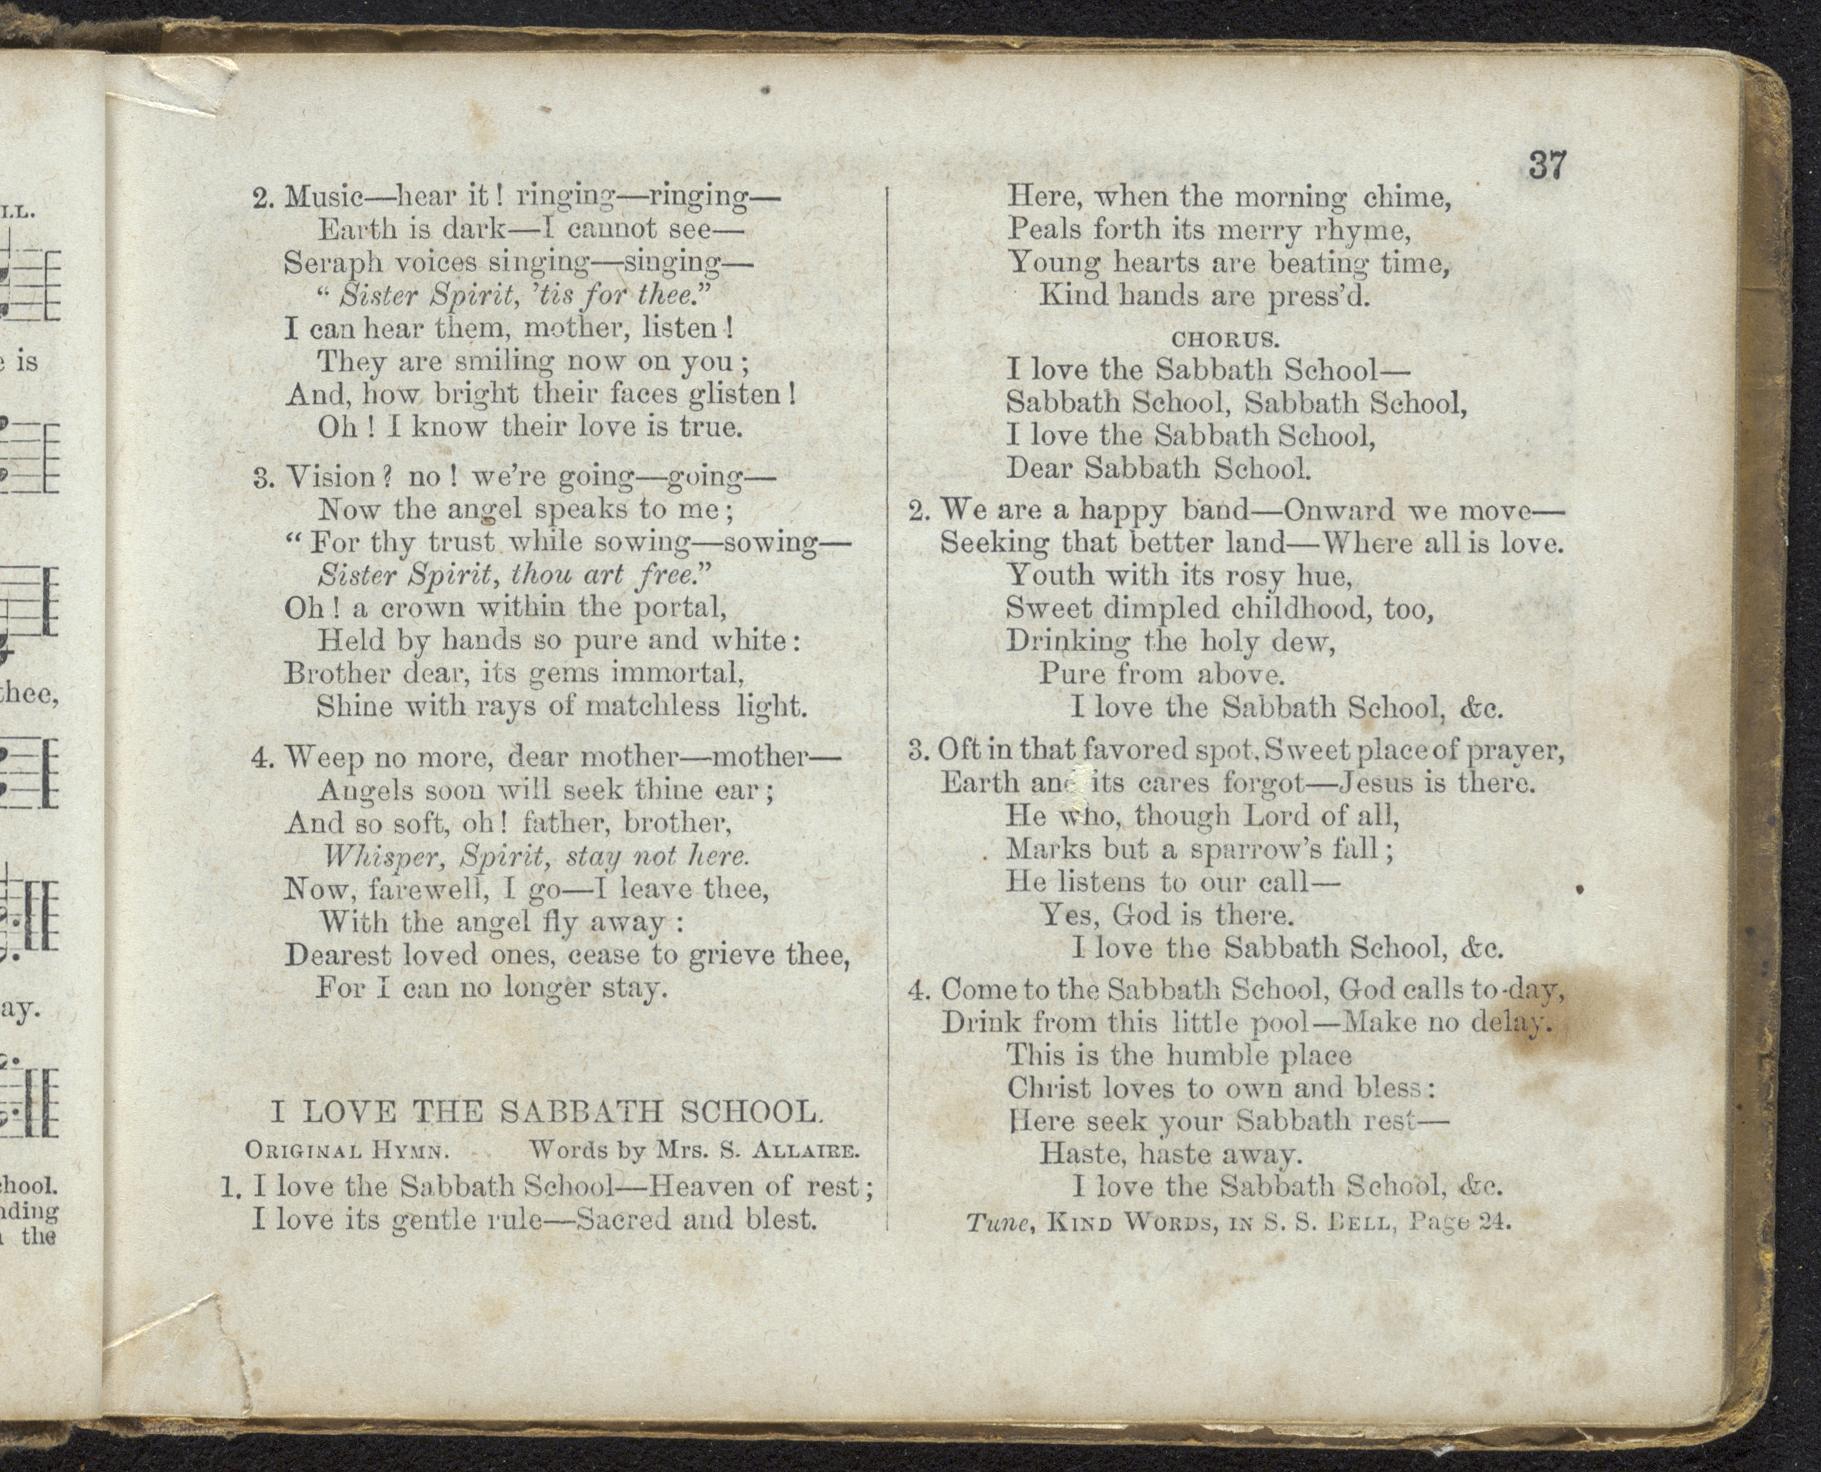 ILL.
e is
thee,
ay.
chool.
nding
the
37
2. Music—hear it! ringing—ringing—
Earth is dark—I cannot see—
Seraph voices singing—singing—
“ Sister Spirit, ’tis for thee.”
I can hear them, mother, listen!
They are smiling now on you;
And, how bright their faces glisten!
Oh! I know their love is true.
3. Vision? no! we’re going—going—
Now the angel speaks to me;
“ For thy trust while sowing—sowing—
Sister Spirit, thou art free.”
Oh! a crown within the portal,
Held by hands so pure and white:
Brother dear, its gems immortal,
Shine with rays of matchless light.
4. Weep no more, dear mother—mother—
Angels soon will seek thine ear;
And so soft, oh! father, brother,
Whisper, Spirit, stay not here.
Now, farewell, I go—I leave thee,
With the angel fly away:
Dearest loved ones, cease to grieve thee,
For I can no longer stay.
I LOVE THE SABBATH SCHOOL.
ORIGINAL HYMN. Words by Mrs. S. ALLAIRE.
1. I love the Sabbath School—Heaven of rest;
I love its gentle rule—Sacred and blest.
Here, when the morning chime,
Peals forth its merry rhyme,
Young hearts are beating time,
Kind hands are press’d.
CHORUS.
I love the Sabbath School—
Sabbath School, Sabbath School,
I love the Sabbath School,
Dear Sabbath School.
2. We are a happy band—Onward we move—
Seeking that better land—Where all is love.
Youth with its rosy hue,
Sweet dimpled childhood, too,
Drinking the holy dew,
Pure from above.
I love the Sabbath School, &c.
3. Oft in that favored spot, Sweet place of prayer,
Earth and its cares forgot—Jesus is there.
He who, though Lord of all,
Marks but a sparrow’s fall;
He listens to our call—
Yes, God is there.
I love the Sabbath School, &c.
4. Come to the Sabbath School, God calls to-day,
Drink from this little pool—Make no delay.
This is the humble place
Christ loves to own and bless:
Here seek your Sabbath rest—
Haste, haste away.
I love the Sabbath School, &c.
Tune, KIND WORDS, IN S. S. BELL, Page 24.